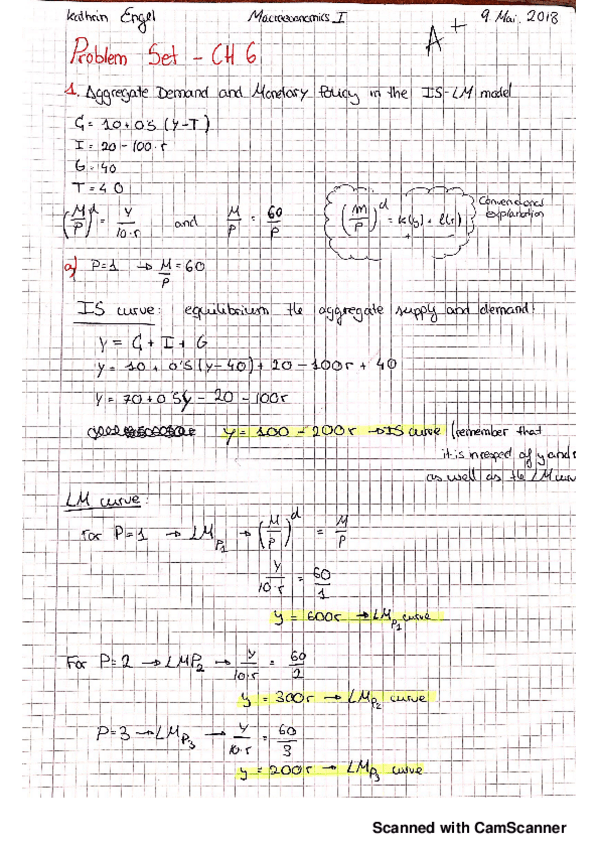 Kathrin Engel Macroeconomics I 9 Mai. 2018
A+
Problem Set - CH 6
1. Aggregate Demand and Monetary Policy in the IS-LM model
C = 10 + 0'5 (Y-T)
I = 20 - 100·r
G = 40
T = 40
(M/P)^d = Y/10·r and M/P = 60/P (M/P)^d = k(y) · l(r) Convencional explanation
a) P=1 → M/P = 60
IS curve: equilibrium the aggregate supply and demand!
Y = C + I + G
Y = 10 + 0'5 (Y-40) + 20 - 100r + 40
Y = 70 + 0'5y - 20 - 100r
y = 100 - 200r → IS curve (remember that
it is in respect of y and r
as well as the LM curv
LM curve:
For P=1 → LM_P1 → (M/P)^d = M/P
Y/10·r = 60/1
y = 600r → LM_P1 curve
For P=2 → LMP2 → Y/10·r = 60/2
y = 300r → LM_P2 curve
P=3 → LM_P3 → Y/10·r = 60/3
y = 200r → LM_P3 curve
Scanned with CamScanner